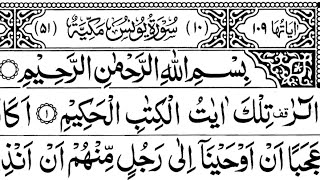 اٰيَاتُهَا ١٠٩ (١٠) سُوْرَةُ يُوْنُسَ مَكِّيَّةٌ (٥١)
بِسْمِ اللّٰهِ الرَّحْمٰنِ الرَّحِيْمِ
الٓرٰ قف تِلْكَ اٰيٰتُ الْكِتٰبِ الْحَكِيْمِ ١ اَكَا
عَجَبًا اَنْ اَوْحَيْنَآ اِلٰى رَجُلٍ مِّنْهُمْ اَنْ اَنْذِ